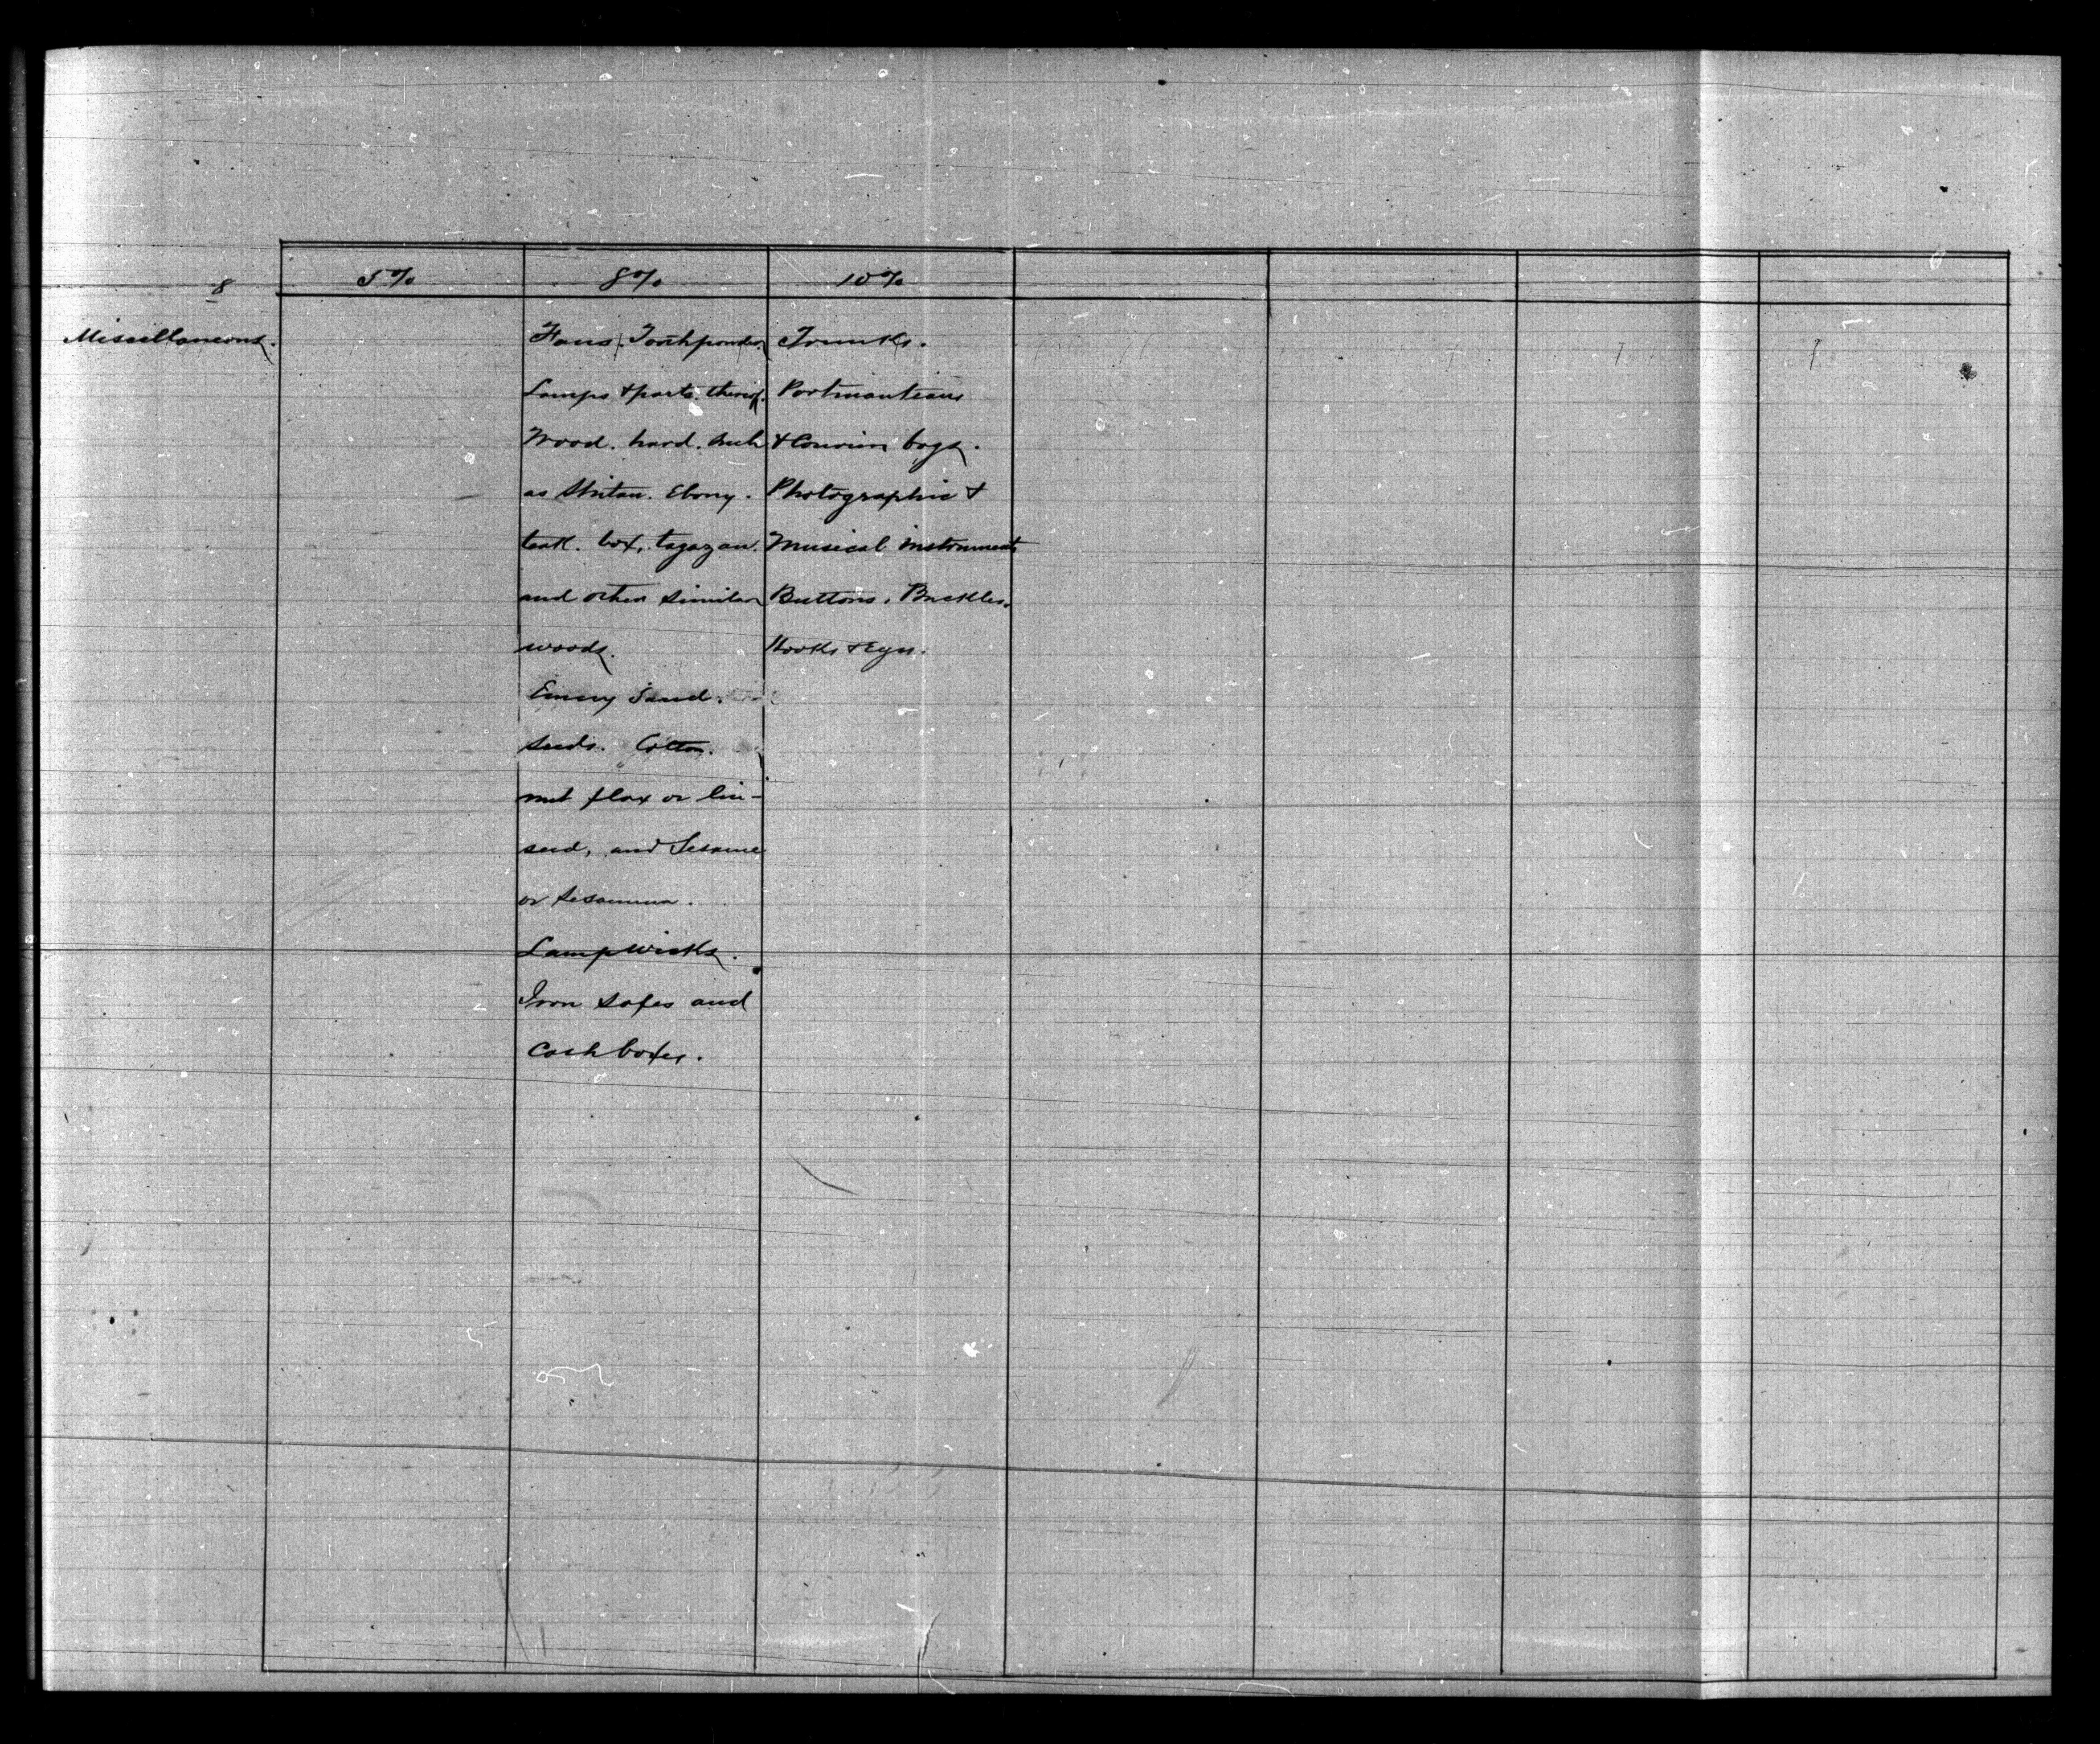 8
5% 8% 10%
Miscellaneous.
Fans. Toothpowder.
Lamps & parts thereof.
Wood. hard. such
as Shitan. Ebony.
teak. box, tagayan.
and other similar
woods.
Emery Sand.
Seeds. Cotton.
nut flax or lin-
seed, and Sesame
or Sesamum.
Lampwicks.
Iron safes and
Cash boxes.
Trunks.
Portmanteaus
& Courier bags.
Photographic &
Musical instruments
Buttons, Buckles.
Hooks & Eyes.